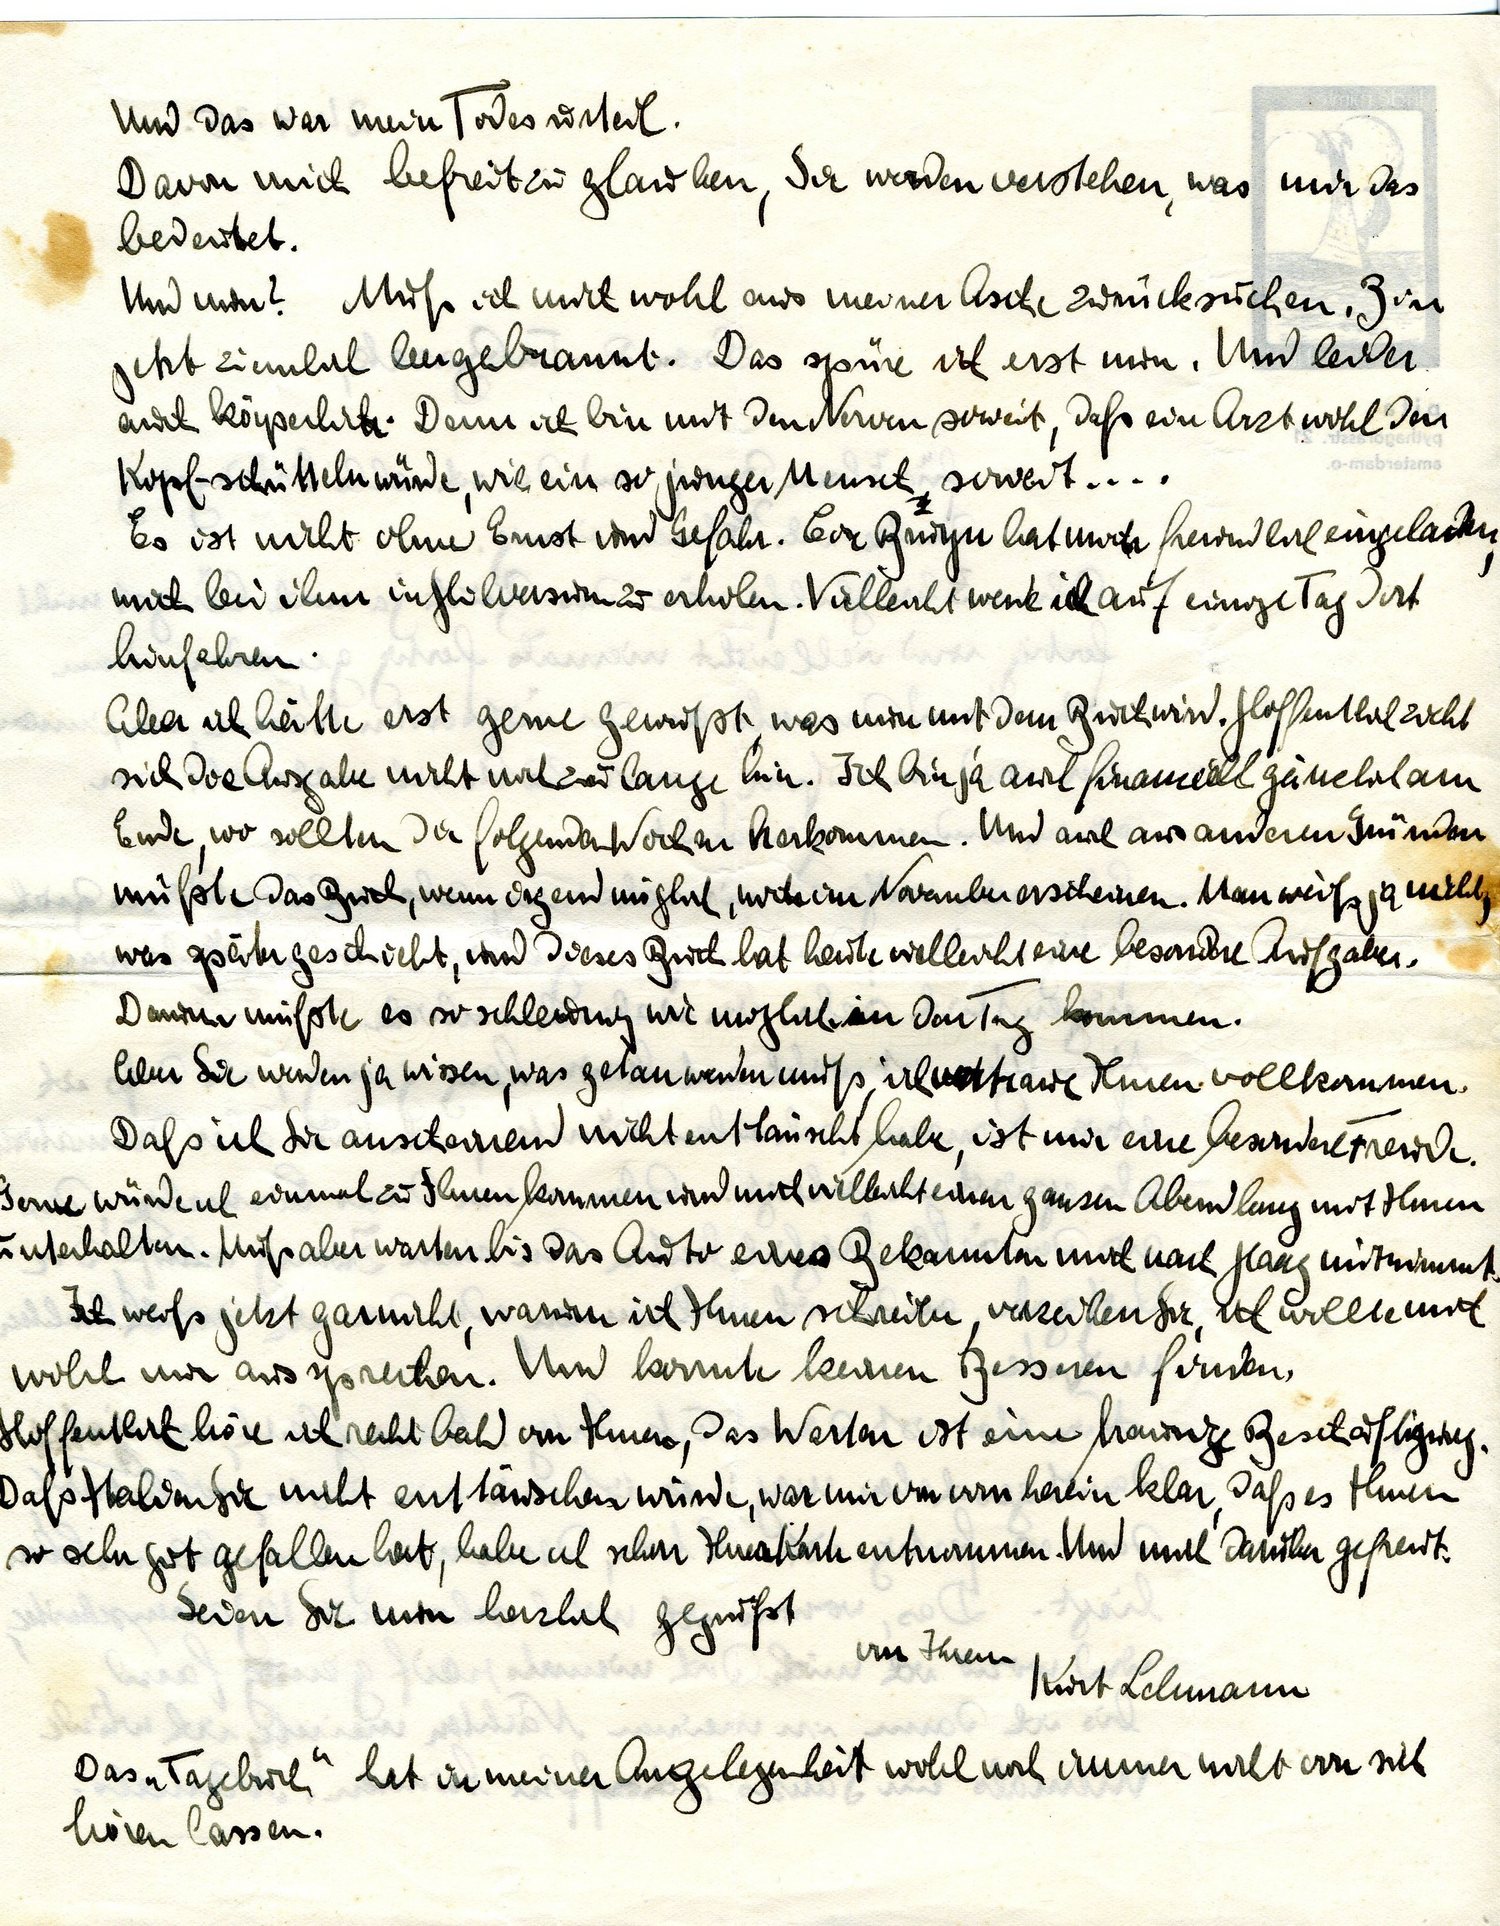 Und das war mein Todesurteil.
Davon mich befreit zu glauben, Sie werden verstehen, was mir das
bedeutet.
Und nun? Muß ich mich wohl aus meiner Asche zurücksuchen. Bin
jetzt ziemlich leergebrannt. Das spüre ich erst nun. Und leider
auch körperlich. Denn ich bin mit den Nerven soweit, daß ein Arzt wohl den
Kopf schütteln würde, wie ein so junger Mensch soweit....
Es ist nicht ohne Ernst und Gefahr. hat mich freundlich eingeladen,
mich bei ihm in Hilversum zu erholen. Vielleicht werde ich auf einige Tag dort
hinfahren.
Aber ich hätte erst gerne gewußt, was nun mit dem Buch wird. Hoffentlich zieht
sich die Ausgabe nicht noch zu lange hin. Ich bin ja auch financiell gänzlich am
Ende, wo sollten die folgenden Wochen herkommen. Und auch aus anderen Gründen
müßte das Buch, wenn irgend möglich, noch im November erscheinen. Man weiß ja nicht,
was später geschieht, und dieses Buch hat heute vielleicht eine besondere Aufgabe.
Darum müßte es so schleunig wie möglich an den Tag kommen.
Aber Sie werden ja wissen, was getan werden muß, ich vertraue Ihnen vollkommen.
Daß ich Sie anscheinend nicht enttäuscht habe, ist mir eine besondere Freude.
Gerne würde ich einmal zu Ihnen kommen und mich vielleicht einen ganzen Abend lang mit Ihnen
unterhalten. Muß aber warten bis das Auto eines Bekannten mich nach Haag mitnimmt.
Ich weiß jetzt garnicht, warum ich Ihnen schreibe, verzeihen Sie, ich wollte mich
wohl nur aussprechen. Und konnte keinen Besseren finden.
Hoffentlich höre ich recht bald von Ihnen, das Warten ist eine traurige Beschäftigung.
Daß Sie nicht enttäuschen würde, war mir von vornherein klar, daß es Ihnen
so sehr gut gefallen hat, habe ich schon Ihrer Karte entnommen. Und mich darüber gefreut.
Seien Sie nun herzlich gegrüßt
von Ihrem
Kurt Lehmann
Das „Tagebuch“ hat in meiner Angelegenheit wohl noch immer nicht von sich
hören lassen.